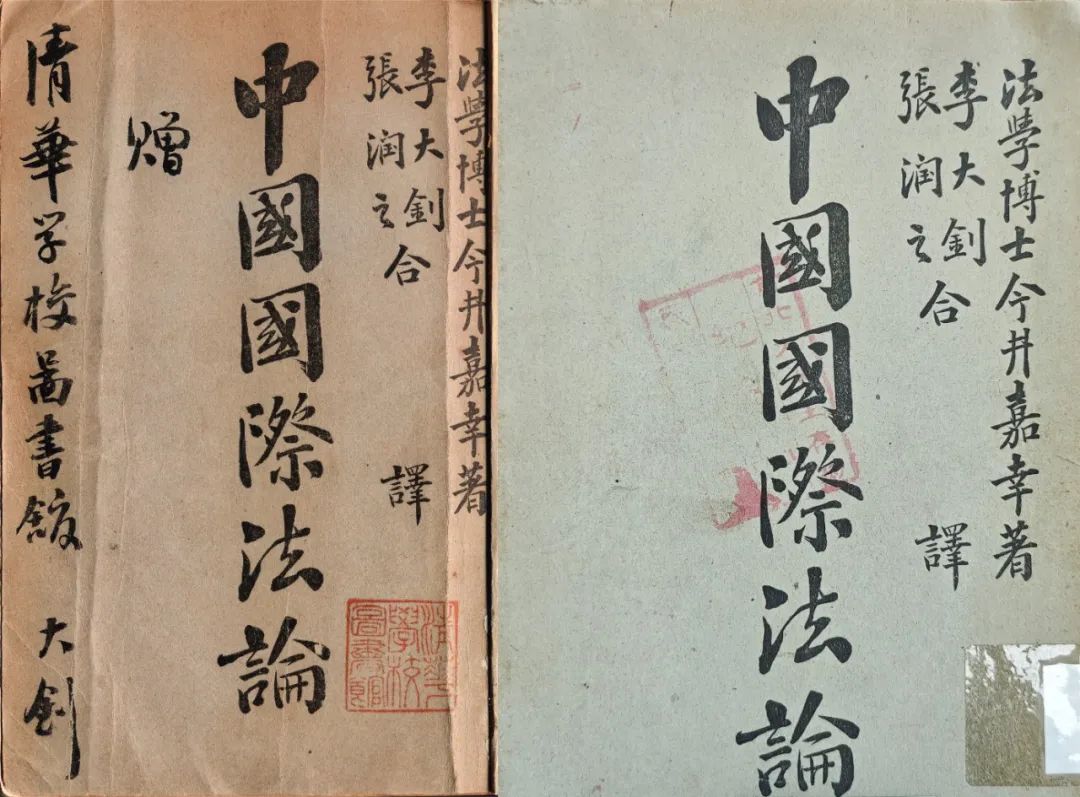 法學博士今井嘉幸著
李大釗
張润之
合譯
中國國際法論
贈
清華学校啚書館
大釗
清華
學校
圖書館
法學博士今井嘉幸著
李大釗
張润之
合譯
中國國際法論